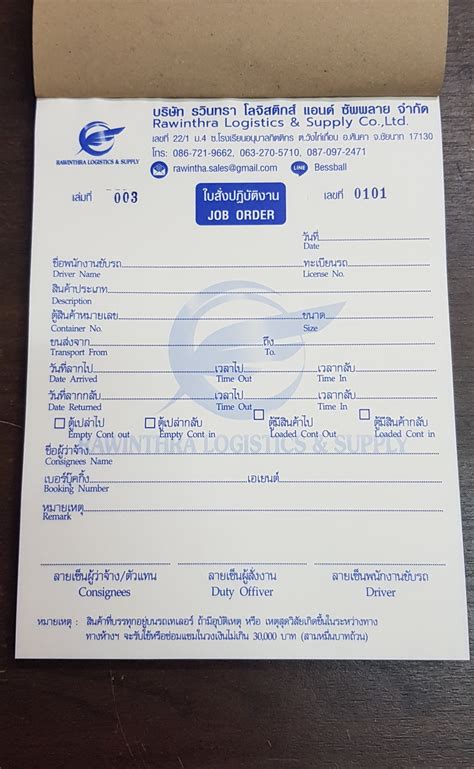 บริษัท รวินทรา โลจิสติกส์ แอนด์ ซัพพลาย จำกัด
Rawinthra Logistics & Supply Co.,Ltd.
เลขที่ 22/1 ม.4 ซ.โรงเรียนอนุบาลกิตติกร ต.วังไก่เถื่อน อ.หันคา จ.ชัยนาท 17130
โทร: 086-721-9662, 063-270-5710, 087-097-2471
RAWINTHRA LOGISTICS & SUPPLY
rawintha.sales@gmail.com LINE Bessball
เล่มที่ 003 ใบสั่งปฏิบัติงาน เลขที่ 0101
JOB ORDER
วันที่
Date
ชื่อพนักงานขับรถ ทะเบียนรถ
Driver Name License No.
สินค้าประเภท
Description
ตู้สินค้าหมายเลข ขนาด
Container No. Size
ขนส่งจาก ถึง
Transport From To.
วันที่ลากไป เวลาไป เวลากลับ
Date Arrived Time Out Time In
วันที่ลากกลับ เวลาไป เวลากลับ
Date Returned Time Out Time In
ตู้เปล่าไป ตู้เปล่ากลับ ตู้มีสินค้าไป ตู้มีสินค้ากลับ
Empty Cont out Empty Cont in Loaded Cont Out Loaded Cont in
RAWINTHRA LOGISTICS & SUPPLY
ชื่อผู้ว่าจ้าง
Consignees Name
เบอร์บุ๊คกิ้ง เอเยนต์
Booking Number
หมายเหตุ
Remark
ลายเซ็นผู้ว่าจ้าง/ตัวแทน ลายเซ็นผู้สั่งงาน ลายเซ็นพนักงานขับรถ
Consignees Duty Offiver Driver
หมายเหตุ : สินค้าที่บรรทุกอยู่บนรถเทเลอร์ ถ้ามีอุบัติเหตุ หรือ เหตุสุดวิสัยเกิดขึ้นในระหว่างทาง
ทางห้างฯ จะรับใช้หรือซ่อมแซมในวงเงินไม่เกิน 30,000 บาท (สามหมื่นบาทถ้วน)